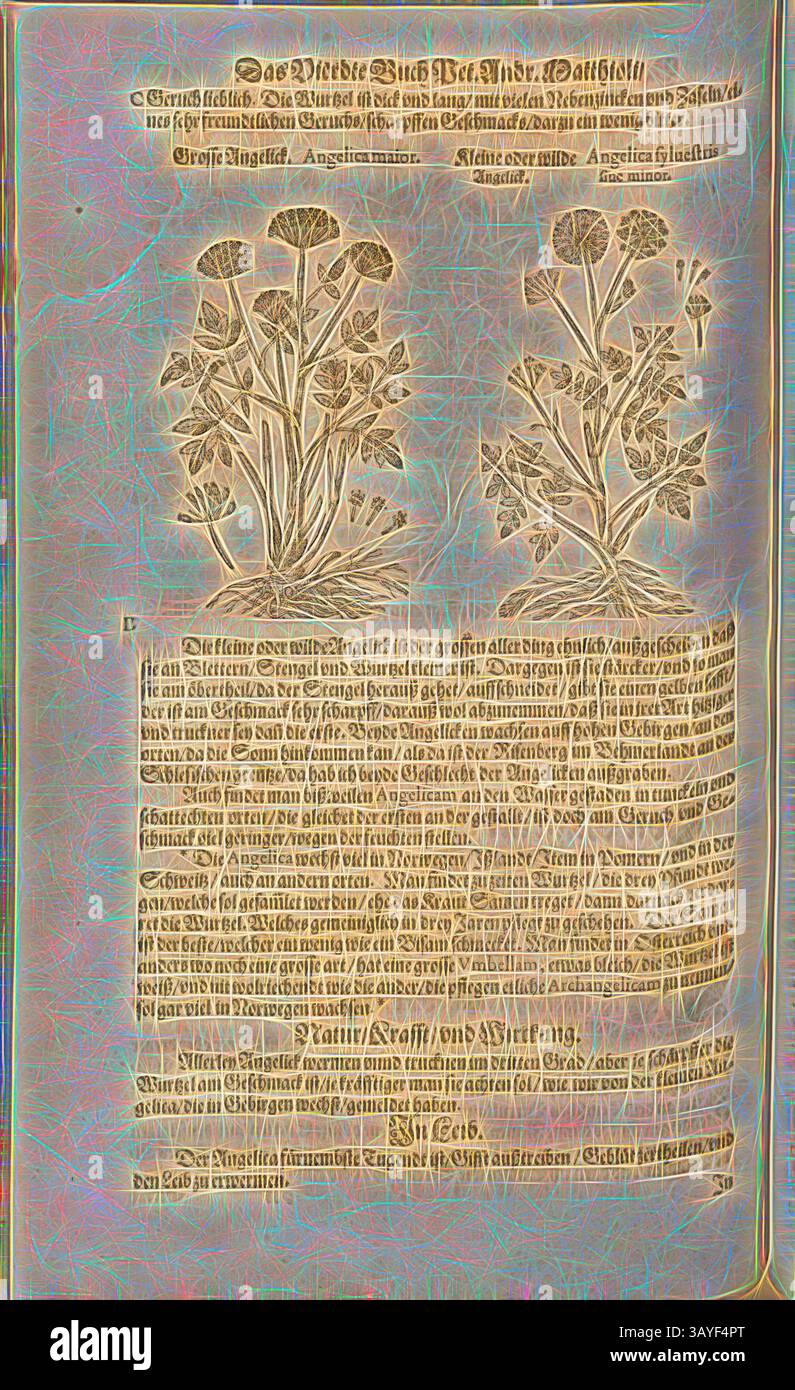 Das Vierdte Buch Pet. Andr. Matthioli/
C Geruch lieblich. Die Wurtzel ist dick vnd lang/ mit vielen Nebenzincken vnd Zaseln/ ei-
nes sehr freundtlichen Geruchs/ scharpffen Geschmacks/ darzu ein wenig bitter.
Grosse Angelick. Angelica maior. Kleine oder wilde Angelica syluestris
Angelick. siue minor.
Die kleine oder wilde Angelick ist der grossen aller ding ehnlich/ außgescheiden daß
sie an Blettern/ Stengel vnd Wurtzel kleiner ist. Dargegen ist sie stärcker/ vnd so man
sie am öbertheil/ da der Stengel herauß gehet/ auffschneidet/ gibt sie einen gelben Safft/
der ist am Geschmack sehr scharpff/ darauß wol abzunemmen/ daß sie in jrer Art hitziger
vnd truckner sey dañ die erste. Beyde Angelicken wachsen auff hohen Gebirgen/ an den
orten/ da die Sonn hinkommen kan/ als da ist der Risenberg im Behmerlandt an der
Schlesischen grentze/ da hab ich beyde Geschlecht der Angelicken außgraben.
Auch findet man bißweilen Angelicam an den Wasser gestaden an tunckeln vnd
schattechten orten/ die gleichet der ersten an der gestalt/ ist doch am Geruch vnd Ge-
schmack viel geringer/ wegen der feuchten stellen.
* Die Angelica wechst viel in Norwegen/ Ißlandt/ Item in Pomern/ vnd in der
Schweitz/ auch an andern orten. Man findet zu zeiten Wurtzel/ die drey Pfundt we-
gen/ welche sol gesamlet werden/ ehe das Kraut Samen treget/ dann darnach verdor-
ret die Wurtzel. Welches gemeiniglich in drey Jaren pflegt zu geschehen. Der Samen
ist der beste/ welcher ein wenig wie ein Bisam schmecket. Man findet in Osterreich vnd
anderswo noch eine grosse art/ hat eine grosse Vmbellam, etwas bleich/ die Wurtzel ist
weiß/ vnd nit wolriechendt wie die ander/ die pflegen etliche Archangelicam zu nennen/
sol gar viel in Norwegen wachsen. *
Natur/ Krafft/ vnd Wirckung.
Allerley Angelick wermen vnnd trucknen im dritten Grad/ aber je schärpffer die
Wurtzel am Geschmack ist/ je kräfftiger man sie achten sol/ wie wir von der kleinen An-
gelica/ die in Gebirgen wechst/ gemeldet haben.
In Leib.
Der Angelica fürnembste Tugendt ist/ Gifft außtreiben/ Geblüt zertheilen/ vnd
den Leib zu erwermen.
In
alamy
Image ID: 3AYF4PT
www.alamy.com